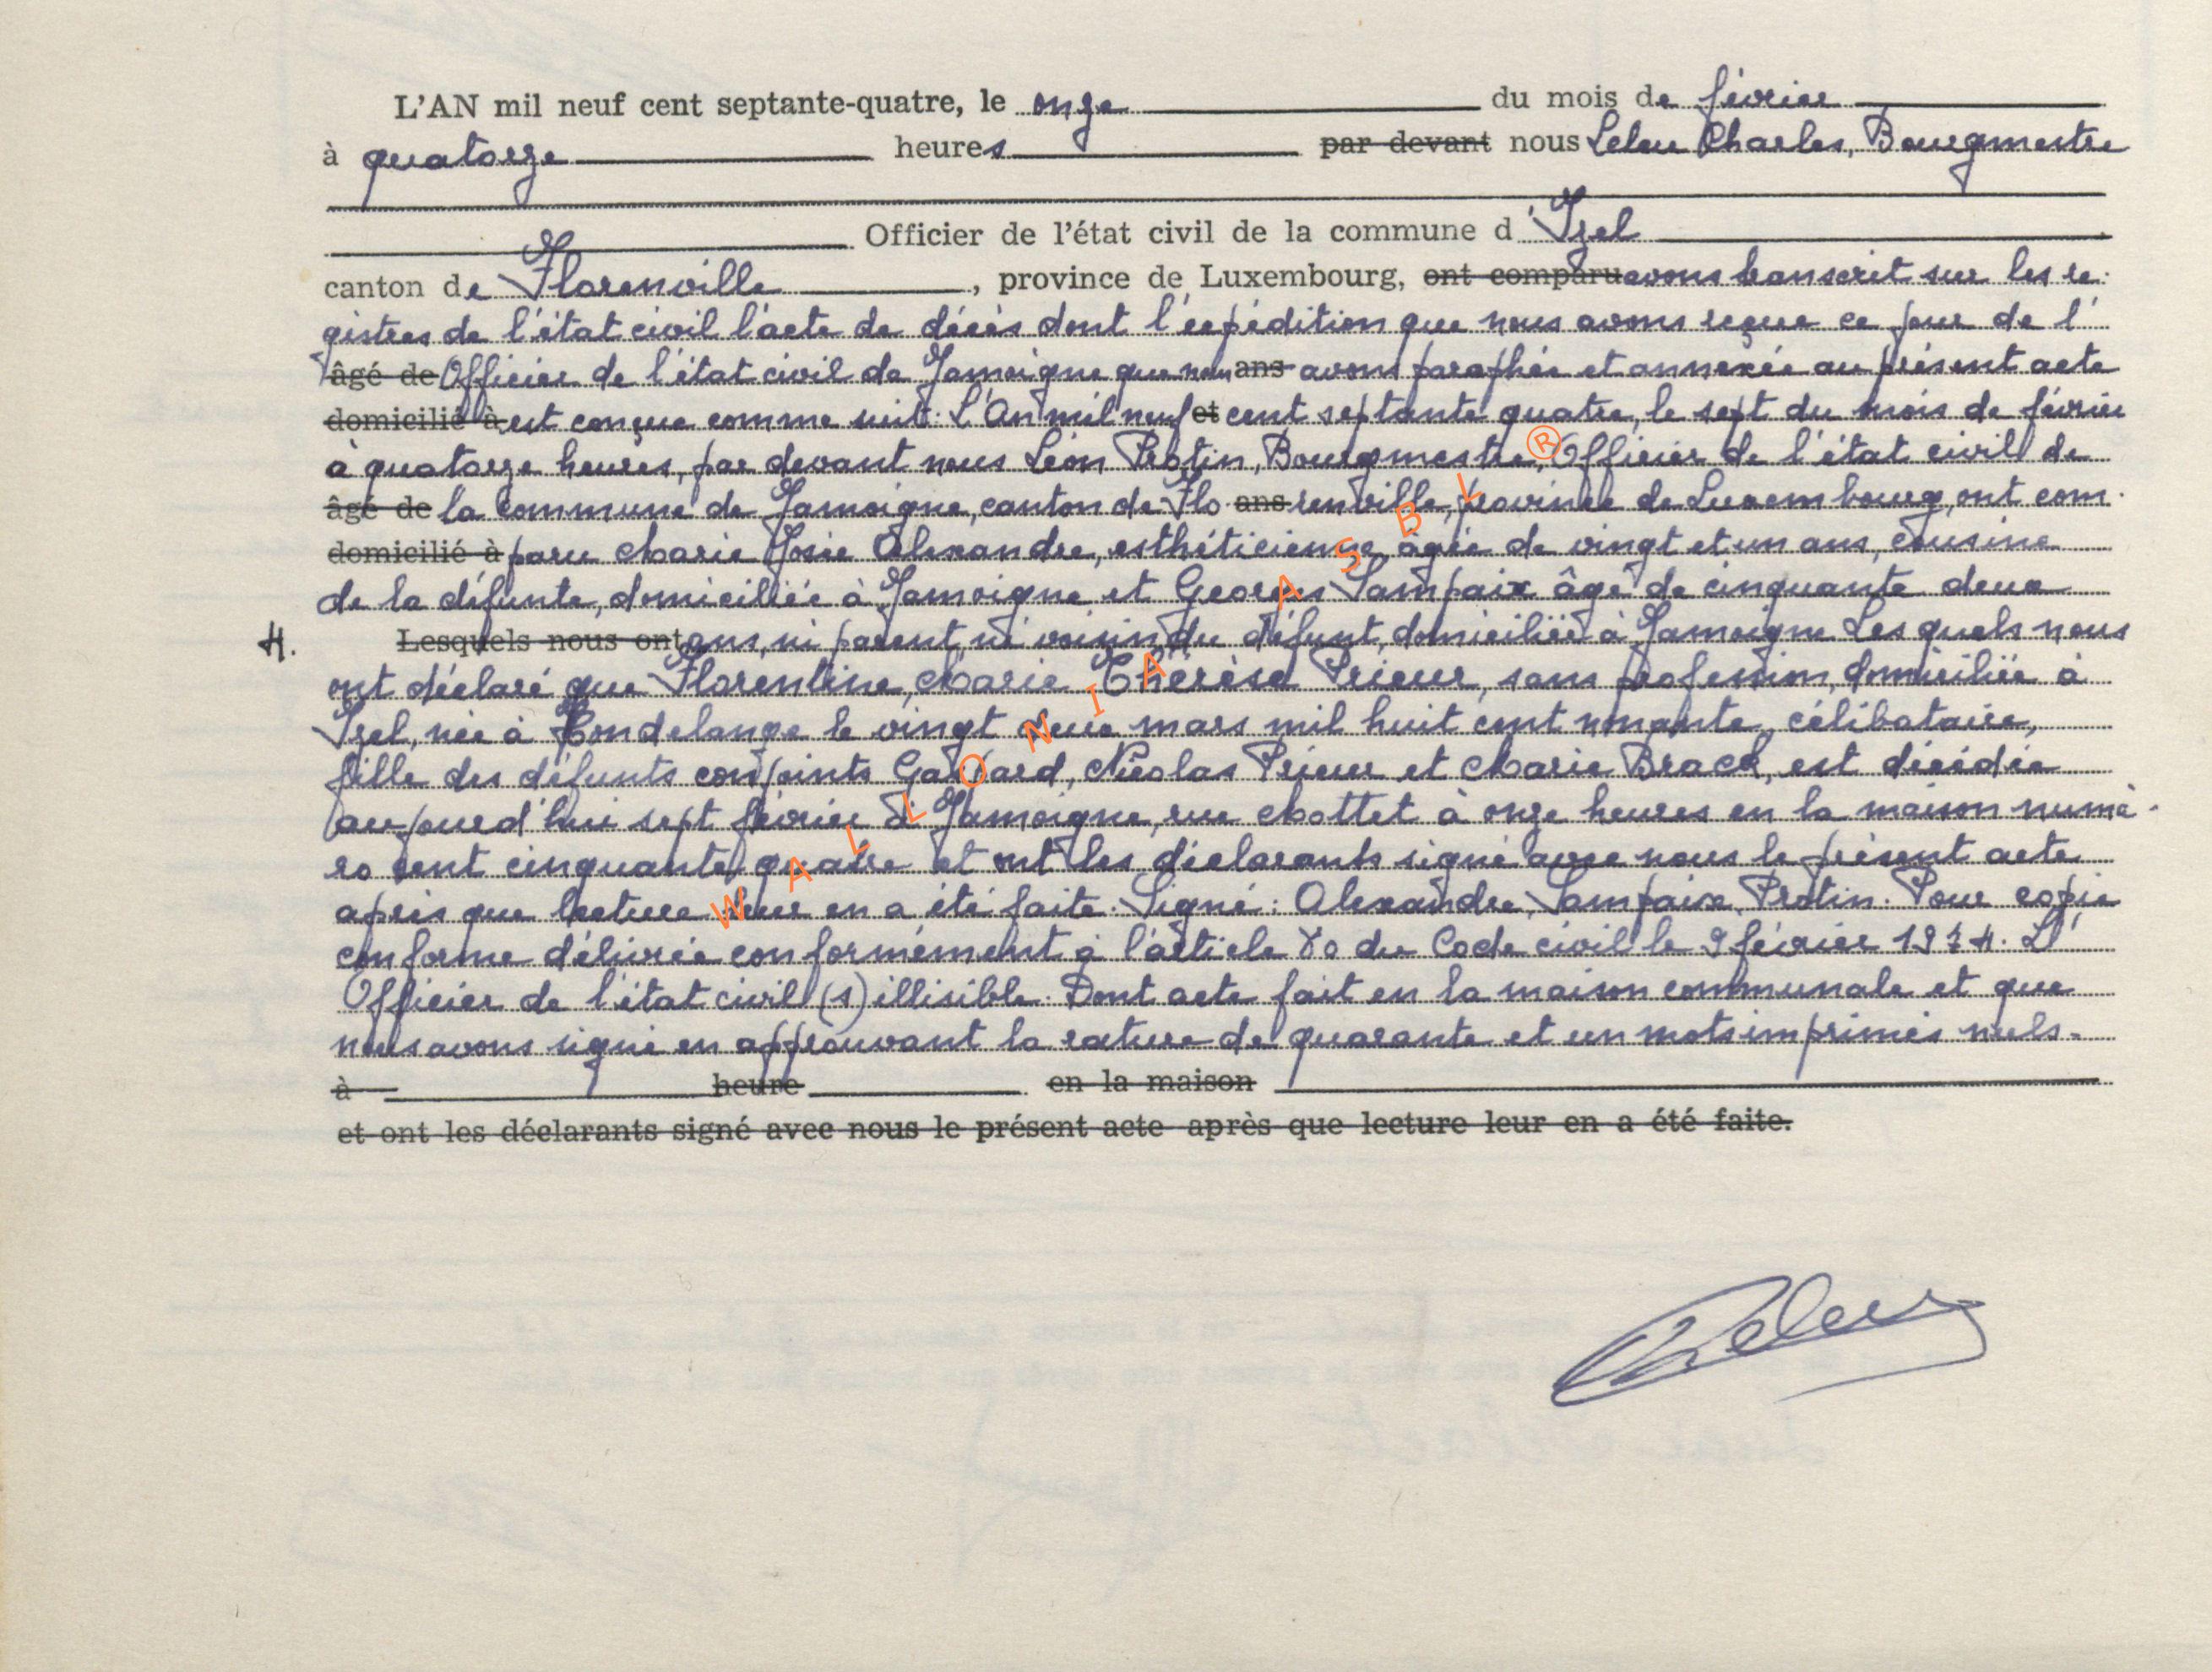 L'AN mil neuf cent septante-quatre, le onze du mois de février
à quatorze heures par devant nous Leleu Charles, Bourgmestre
Officier de l'état civil de la commune d'Izel
canton de Florenville, province de Luxembourg, ont comparu avons transcrit sur les re-
gistres de l'état civil l'acte de décès dont l'expédition que nous avons reçue ce jour de l'
âgé de Officier de l'état civil de Jamoigne que nous ans avons paraphée et annexée au présent acte
domicilié à est conçue comme suit: L'An mil neuf et cent septante quatre, le sept du mois de février
à quatorze heures, par devant nous Léon Protin, Bourgmestre, Officier de l'état civil de
âgé de la commune de Jamoigne, canton de Flo ans renville, province de Luxembourg, ont com-
domicilié à paru Marie Josée Alexandre, esthéticienne, âgée de vingt et un ans, cousine
de la défunte, domiciliée à Jamoigne et Georges Sampaix âgé de cinquante deux
4. Lesquels nous ont ans, ni parent, ni voisin du défunt, domicilié à Jamoigne Lesquels nous
ont déclaré que Florentine, Marie Thérèse Prieur, sans profession, domiciliée à
Izel, née à Hondelange le vingt deux mars mil huit cent nonante, célibataire,
fille des défunts conjoints Gaspard, Nicolas Prieur et Marie Brack, est décédée
aujourd'hui sept février à Jamoigne, rue Mottet à onze heures en la maison numé-
ro cent cinquante quatre et ont les déclarants signé avec nous le présent acte
après que lecture leur en a été faite. Signé: Alexandre, Sampaix, Protin. Pour copie
conforme délivrée conformément à l'article 80 du Code civil le 9 février 1974. L'
Officier de l'état civil (s) illisible. Dont acte fait en la maison communale et que
nous avons signé en approuvant la rature de quarante et un mots imprimés nuls.
à heure en la maison
et ont les déclarants signé avec nous le présent acte après que lecture leur en a été faite.
Leleu
WALLONIA ASBL ®